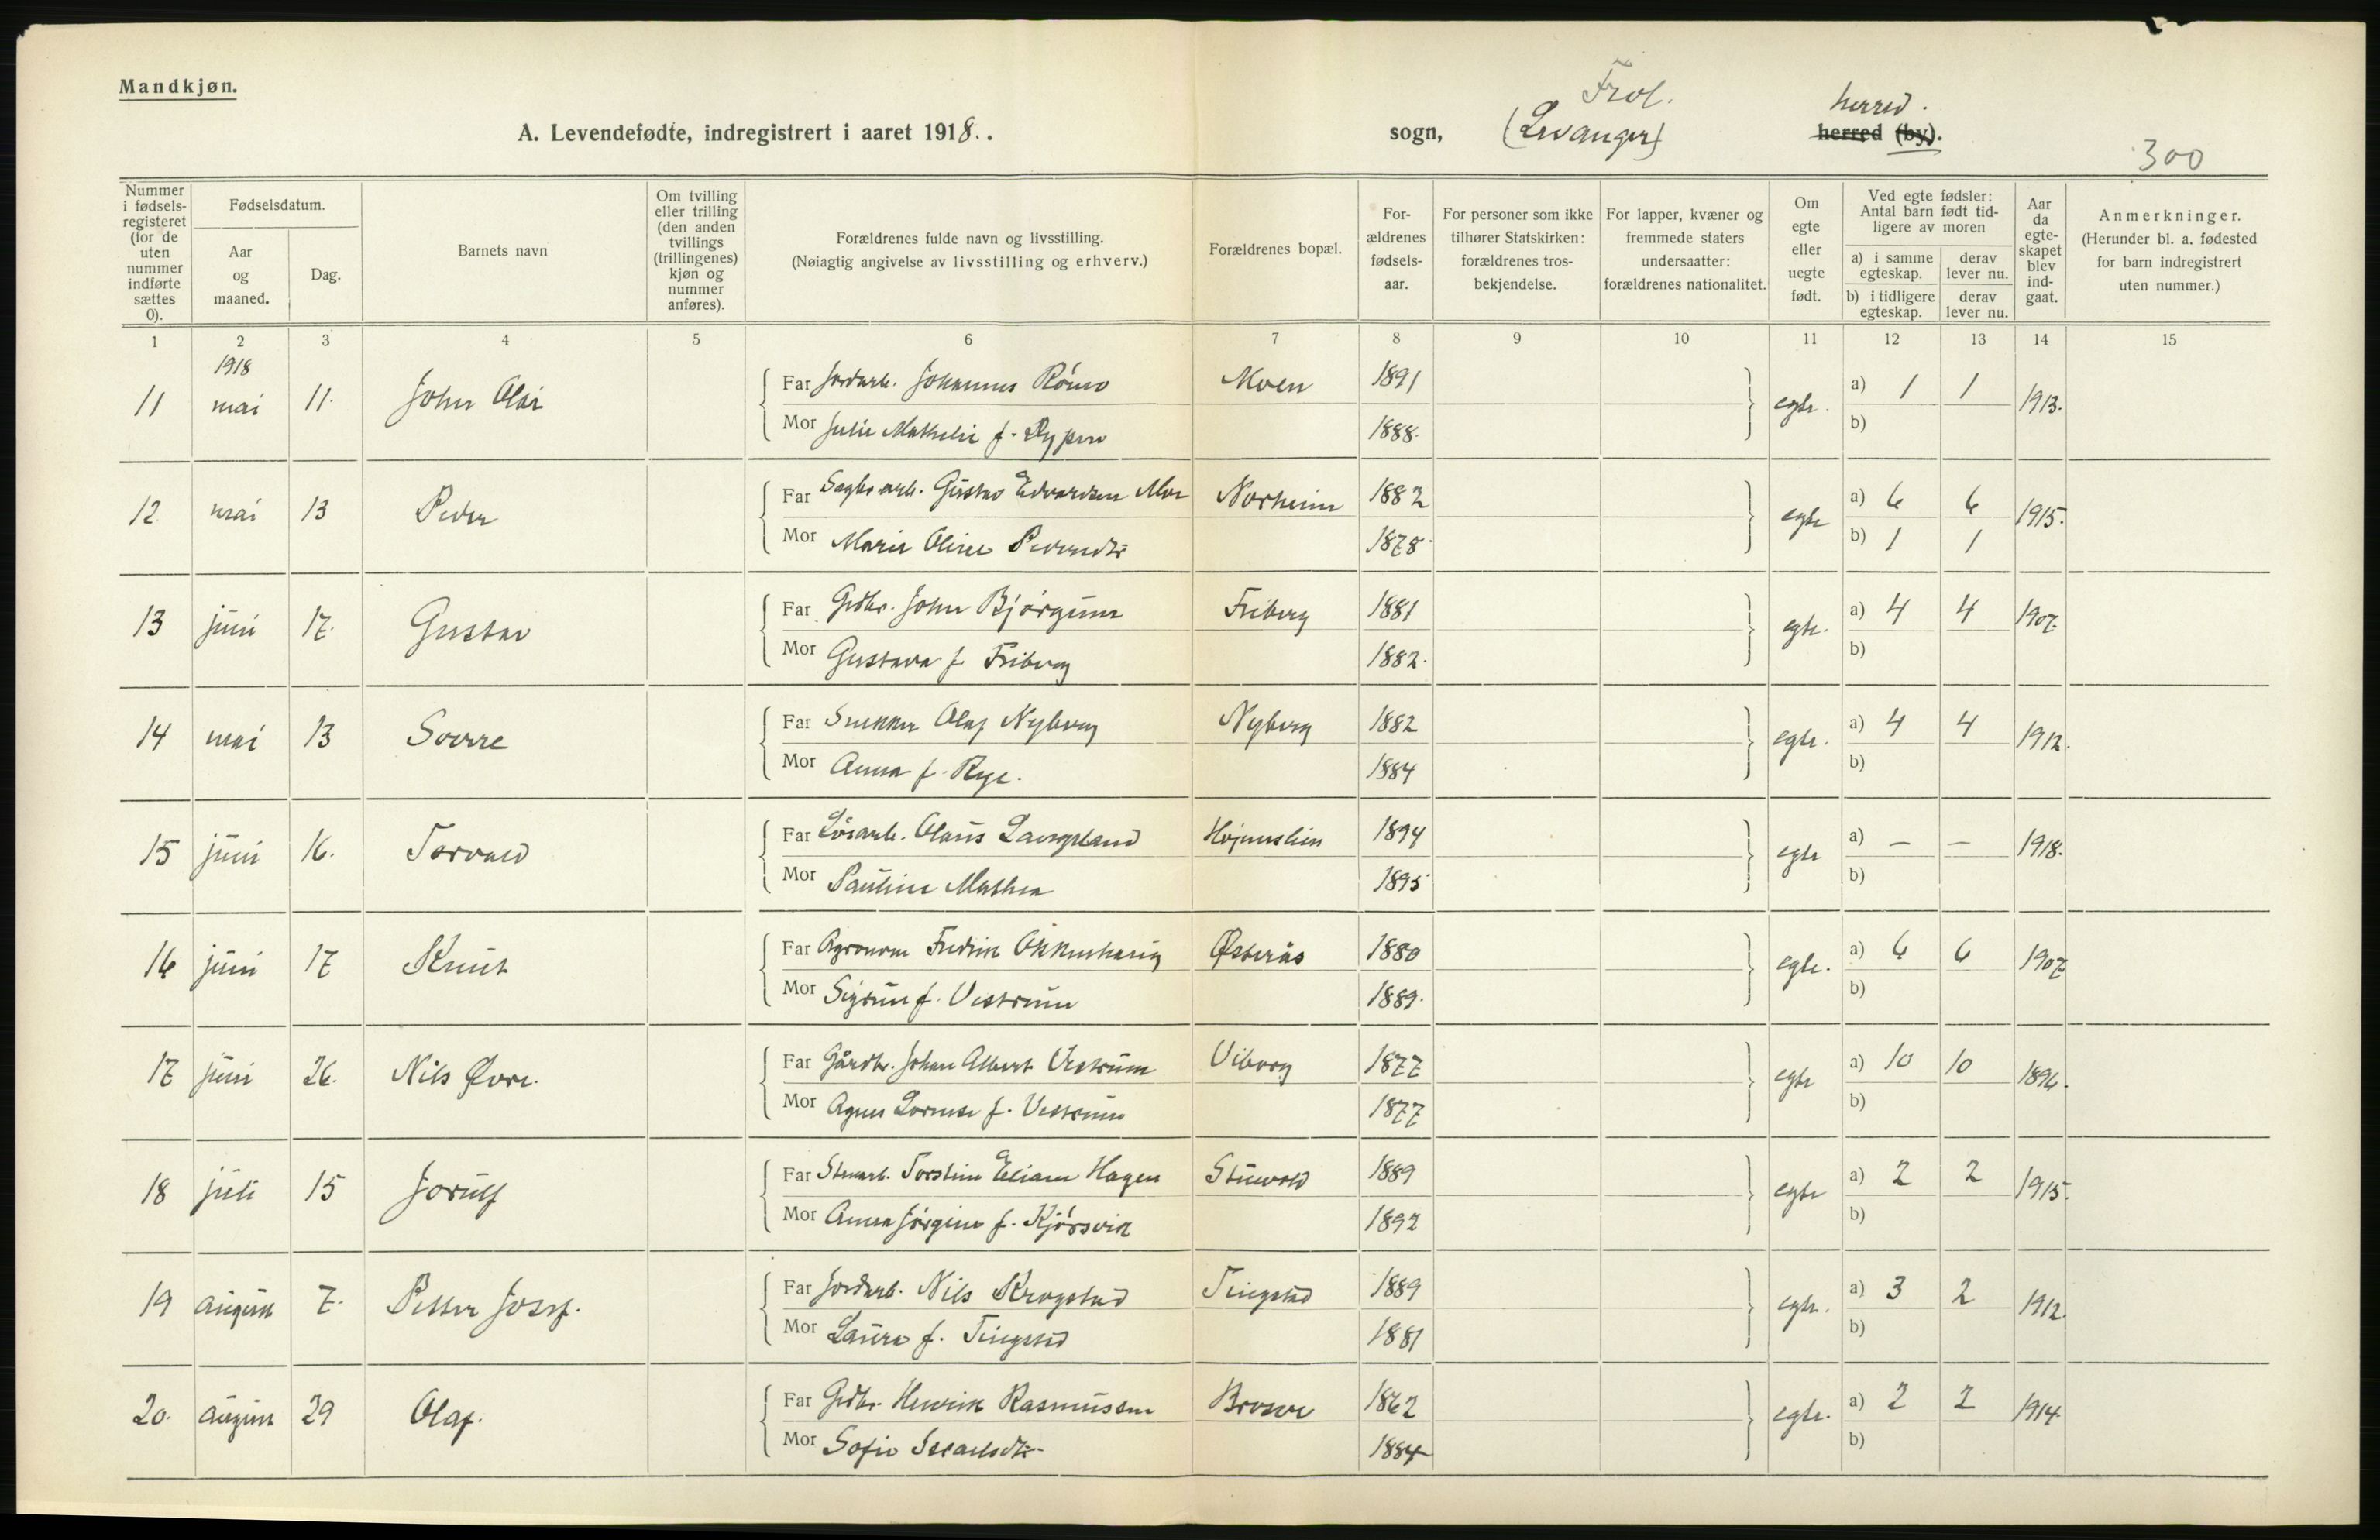 Mandkjøn.
A. Levendefødte, indregistrert i aaret 1918.
sogn, Frol. (Levanger) herred. herred (by).
300
Nummer i fødsels-registeret (for de uten nummer indførte sættes 0).
Fødselsdatum.
Aar og maaned.
Dag.
Barnets navn
Om tvilling eller trilling (den anden tvillings (trillingenes) kjøn og nummer anføres).
Forældrenes fulde navn og livsstilling.
(Nøiagtig angivelse av livsstilling og erhverv.)
Forældrenes bopæl.
For-ældrenes fødsels-aar.
For personer som ikke tilhører Statskirken: forældrenes tros-bekjendelse.
For lapper, kvæner og fremmede staters undersaatter: forældrenes nationalitet.
Om egte eller uegte født.
Ved egte fødsler: Antal barn født tid-ligere av moren
a) i samme egteskap.
derav lever nu.
b) i tidligere egteskap.
derav lever nu.
Aar da egte-skapet blev ind-gaat.
Anmerkninger.
(Herunder bl. a. fødested for barn indregistrert uten nummer.)
1 2 3 4 5 6 7 8 9 10 11 12 13 14 15
1918
11 mai 11. John Olai Far Jordarb. Johannes Rømo Moen 1891 egte. a) 1 1 1913.
Mor Julie Mathilie f. 1888. b)
12 mai 13 Peder Far Sagbr.arb. Gustav Edvardsen Moe Norheim 1882 egte a) 6 6 1915.
Mor Marie Oline Pedersdtr 1878 b) 1 1
13 juni 17. Gustav Far Grdbr. John Bjørgum Friberg 1881 egte. a) 4 4 1907.
Mor Gustava f. Friberg 1882. b)
14 mai 13 Sverre Far Snekker Olaf Nyberg Nyberg 1882 egte. a) 4 4 1912.
Mor Anna f. Rye. 1884 b)
15 juni 16. Torvald Far Løsarb. Olaus 1894 egte a) — — 1918.
Mor Pauline Mathea 1895 b)
16 juni 17 Knut Far Agronom Fredrik Okkenhaug Østerås 1880 egte. a) 6 6 1907
Mor Sigrun f. Vestrum 1889. b)
17 juni 26. Nils Øvre. Far Gårdbr. Johan Albert Vestrum Viborg 1877 egte a) 10 10 1896.
Mor Agnes Lornse f. Vestrum 1877 b)
18 juli 15 Jorulf Far Stenarb. Torstein Eliasen Hagen 1889 egte a) 2 2 1915.
Mor Anna Jørgine f. Kjørsvik 1892 b)
19 august 7. Petter Josef. Far Jordarb. Nils Krogstad Tingstad 1889 egte. a) 3 2 1912.
Mor Laura f. Tingstad 1881 b)
20. august 29 Olaf. Far Grdbr. Henrik Rasmussen 1862 egte. a) 2 2 1914.
Mor Sofie 1884 b)